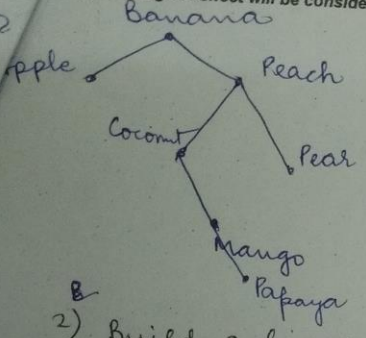 effect will be conside
Banana
pple
Peach
Coconut
Pear
Mango
Papaya
B
2) Build